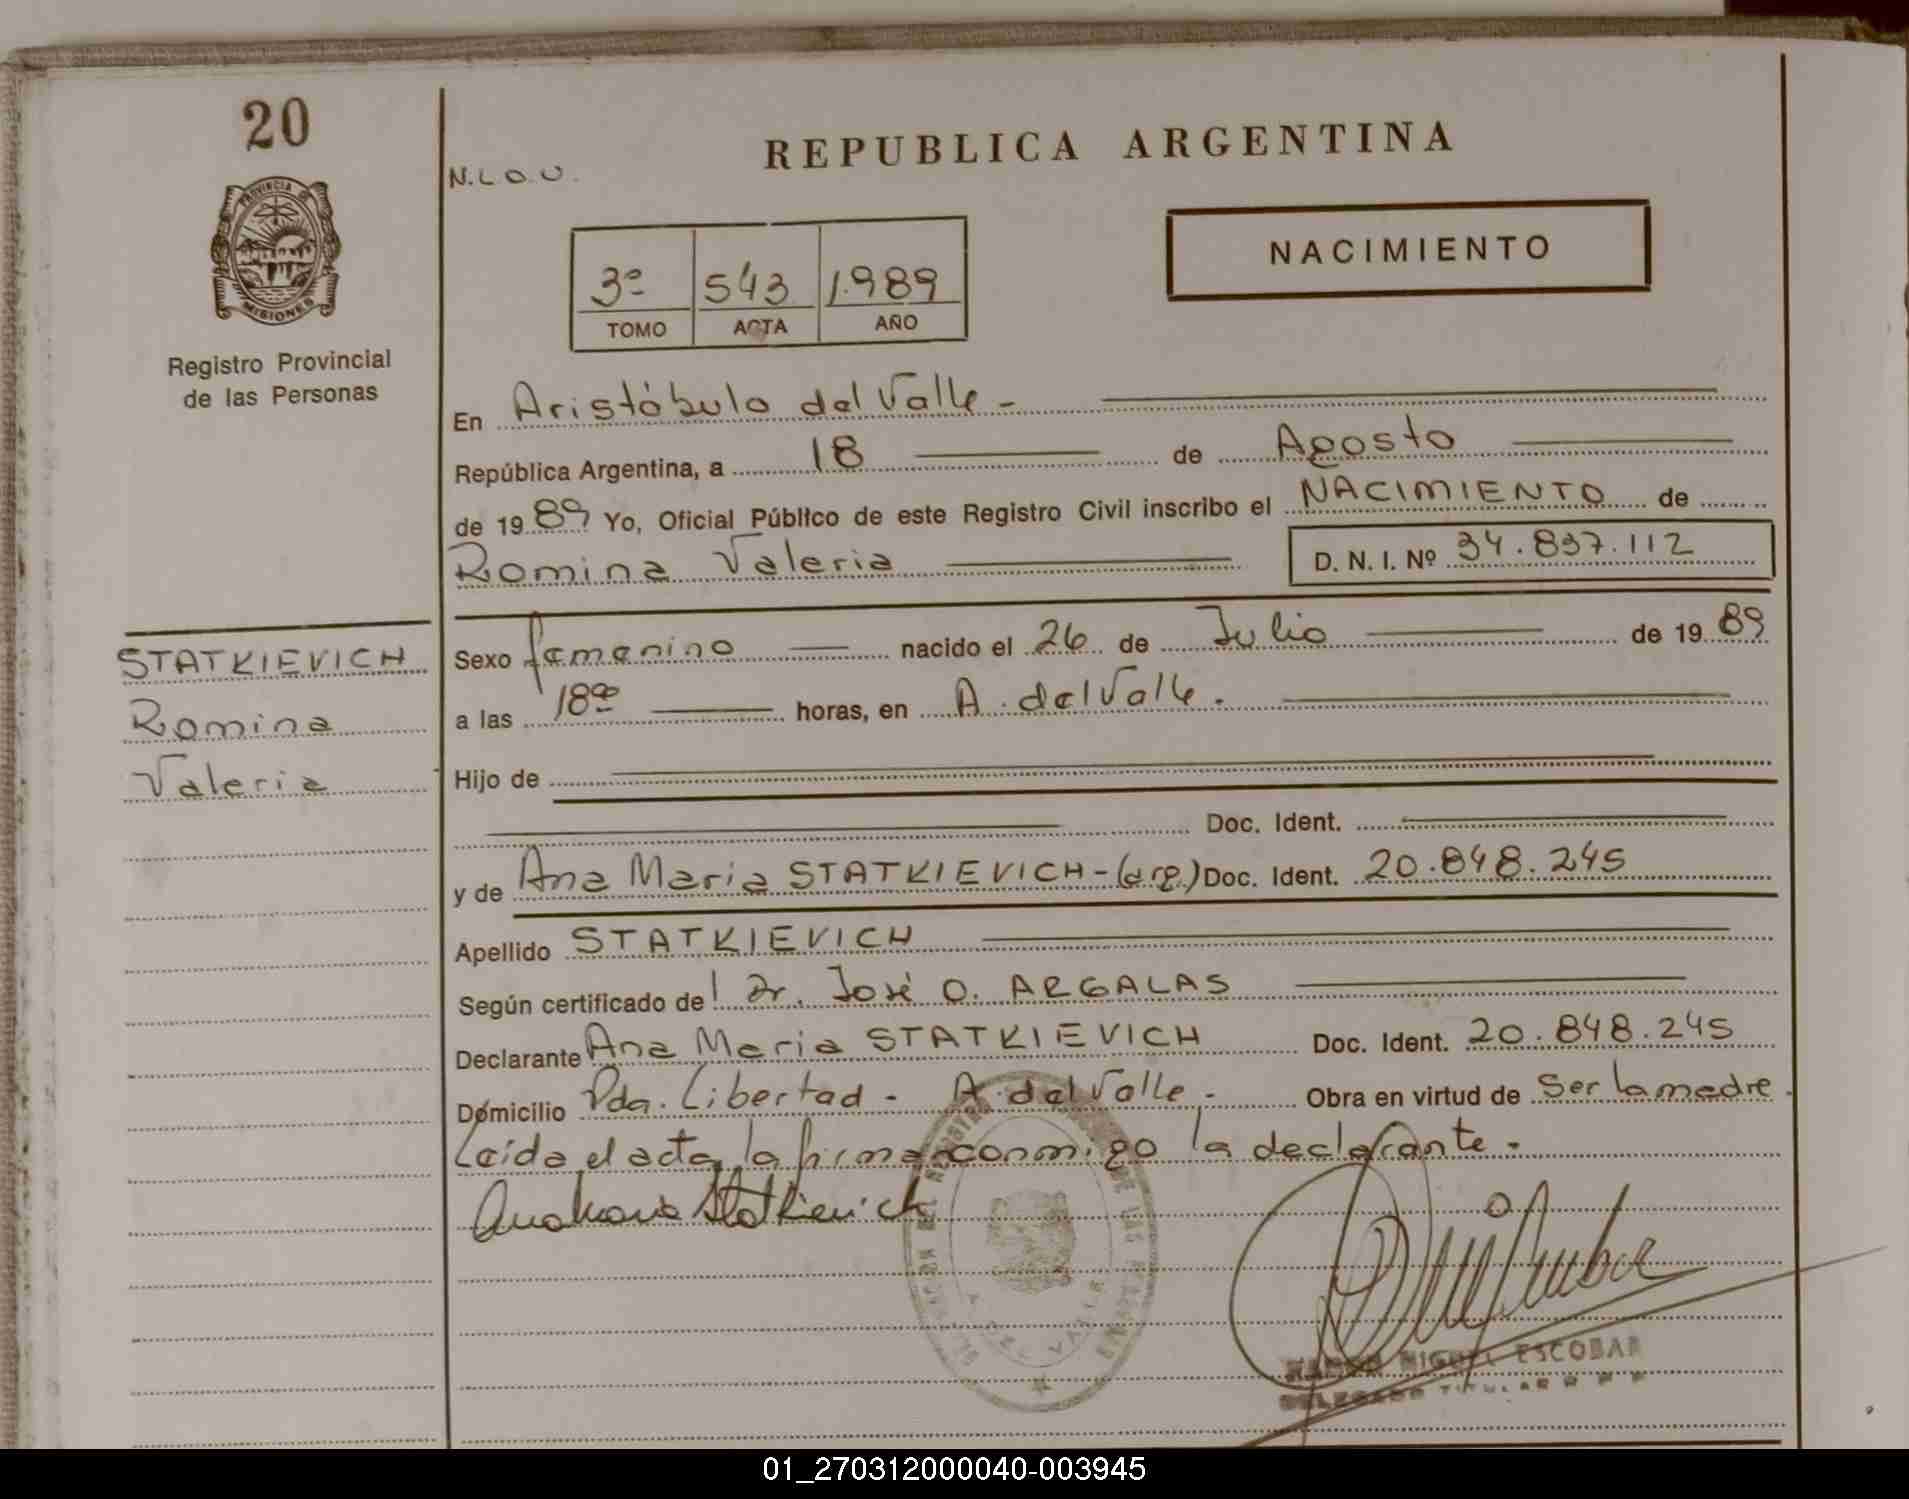 20
N.L.O.U.
REPUBLICA ARGENTINA
PROVINCIA DE
MISIONES
Registro Provincial
de las Personas
3º 543 1.989
TOMO ACTA AÑO
NACIMIENTO
En Aristóbulo del Valle -
República Argentina, a 18 de Agosto
de 1989 Yo, Oficial Público de este Registro Civil inscribo el NACIMIENTO de
Romina Valeria D. N. I. Nº 34.837.112
STATKIEVICH
Romina
Valeria
Sexo femenino nacido el 26 de Julio de 1989
a las 18ºº horas, en A. del Valle.
Hijo de
Doc. Ident.
y de Ana Maria STATKIEVICH - (arg.) Doc. Ident. 20.848.245
Apellido STATKIEVICH
Según certificado del Dr. José O. ARGALAS
Declarante Ana Maria STATKIEVICH Doc. Ident. 20.848.245
Domicilio Pda. Libertad - A. del Valle - Obra en virtud de Ser la madre.
Leída el acta, la firma conmigo la declarante.
Ana Maria Statkievich
MIGUEL ESCOBAR
DELEGADO TITULAR R P P
01_270312000040-003945